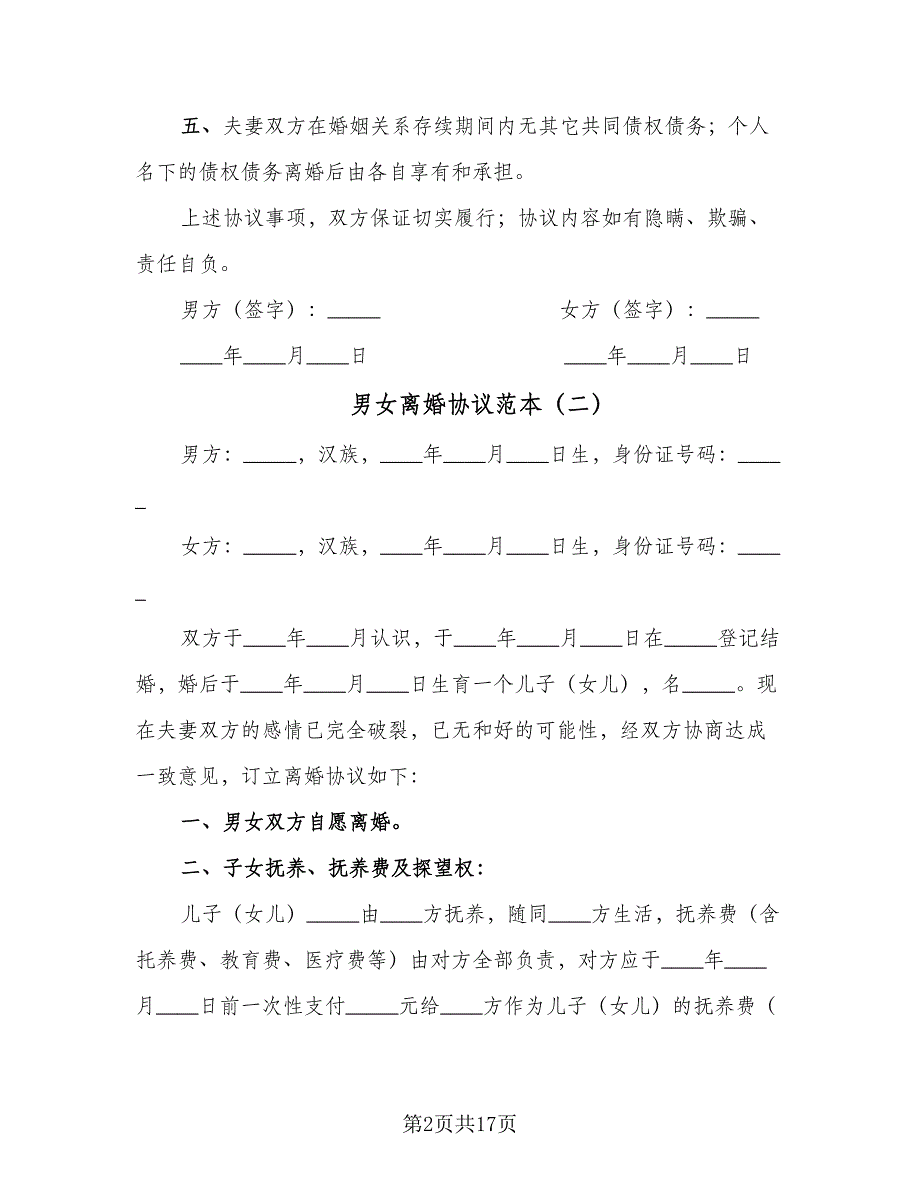 五、夫妻双方在婚姻关系存续期间内无其它共同债权债务；个人
名下的债权债务离婚后由各自享有和承担。
上述协议事项，双方保证切实履行；协议内容如有隐瞒、欺骗、
责任自负。
男方（签字）：_____ 女方（签字）：_____
____年____月____日 ____年____月____日
男女离婚协议范本（二）
男方：_____，汉族，____年____月____日生，身份证号码：____
_
女方：_____，汉族，____年____月____日生，身份证号码：____
_
双方于____年____月认识，于____年____月____日在_____登记结
婚，婚后于____年____月____日生育一个儿子（女儿），名_____。现
在夫妻双方的感情已完全破裂，已无和好的可能性，经双方协商达成
一致意见，订立离婚协议如下：
一、男女双方自愿离婚。
二、子女抚养、抚养费及探望权：
儿子（女儿）_____由____方抚养，随同____方生活，抚养费（含
托养费、教育费、医疗费等）由对方全部负责，对方应于____年____
月____日前一次性支付_____元给____方作为儿子（女儿）的抚养费（
第2页共17页